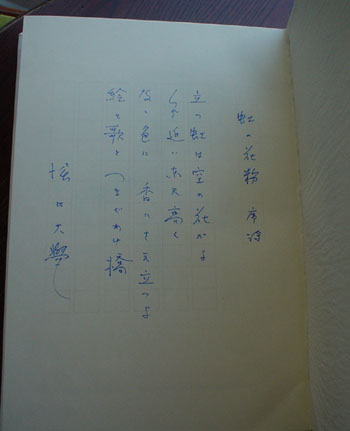 虹の花粉 序詩
立つ虹は空の花かよ
くれ近い東天高く
なゝ色に 香にさえ立つよ
絵と歌と つなぐかけ橋
堀口大學